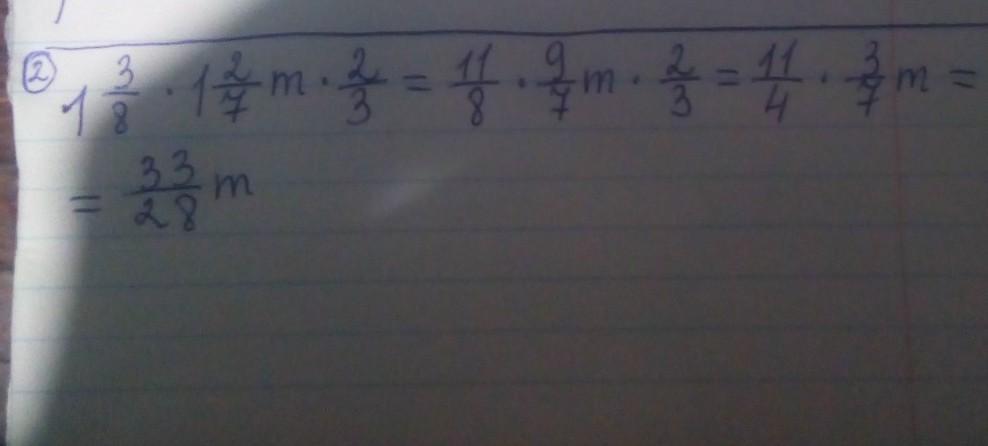 ② 1 3/8 · 1 2/7 m · 2/3 = 11/8 · 9/7 m · 2/3 = 11/4 · 3/7 m =
= 33/28 m